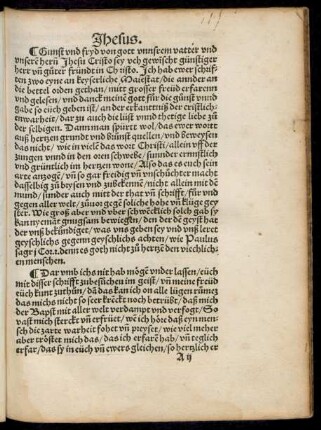 Jhesus.
¶ Gunst vnd fryd von gott vnnserem vatter vnd
vnserē herrn̄ Jhesu Cristo sey vch gewischt günstiger
herr vn̄ güter fründt in Christo. Jch hab ewer schriff-
ten zwo eyne an keyserliche Maiestat/die annder an
die bettel orden gethan/mitt grosser freüd erfarenn
vnd gelesen/vnd danck meinē gott für die günst vund
gab so euch geben ist/in der erkanntnuß der cristlichen-
enwarheit/dar zu auch die lüst vnnd thetige liebe zu
der selbigen. Damman spürtt wol/das ewer wortt
auß herzen grundt vnd künst quellen/vnd bewysen
das nicht/wie in vielē das wort Christi/allein vff der
zungen vnnd in den oren schwebe/sunder ernnstlich
vnd grüntlich im herzen wone/Also das es euch sein
arte anzogē/vn̄ so gar freidig vn̄ vnschüchter macht
dasselbig zu bysen vnd zubekennē/nicht allein mit dē
mund/sunder auch mit der that vn̄ schrifft/für vnd
gegen aller welt/zuuor gegē soliche hohe vn̄ klüge gey
ster. Wie groß aber vnd vber schwēcklich solch gab sy
kan nyemāt gnugsam bewiegkn/den der dē geyst hat
der vns bekündiget/was vns geben sey vnd vns leret
geyschlichs gegenn geyschlichs achten/wie Paulus
sagt j Cor.t.denn es goth nicht zu hertzē den viechlich-
en menschen.
¶ Dar vmb ichs nit hab mögē vnder lassen/euch
mit disser schrifft zubesüchen im geist/vn̄ meine freud
euch kunt zuthün/dā das kan ich on alle lügen rümen
das michs nicht so seer kreckt noch betrübt/daß mich
der Bapst mit aller welt verdampt vnd verfogt/So
vast mich sterckt vn̄ erfrüet/we ich höre/daß eyn men-
sch die zarte warheit fohet vn̄ preyset/wie viel meher
aber tröstet mich das/das ich erfarē hab/vn̄ teglich
erfar/das sy in euch vn̄ ewers gleichen/so hertzlich er
A ij